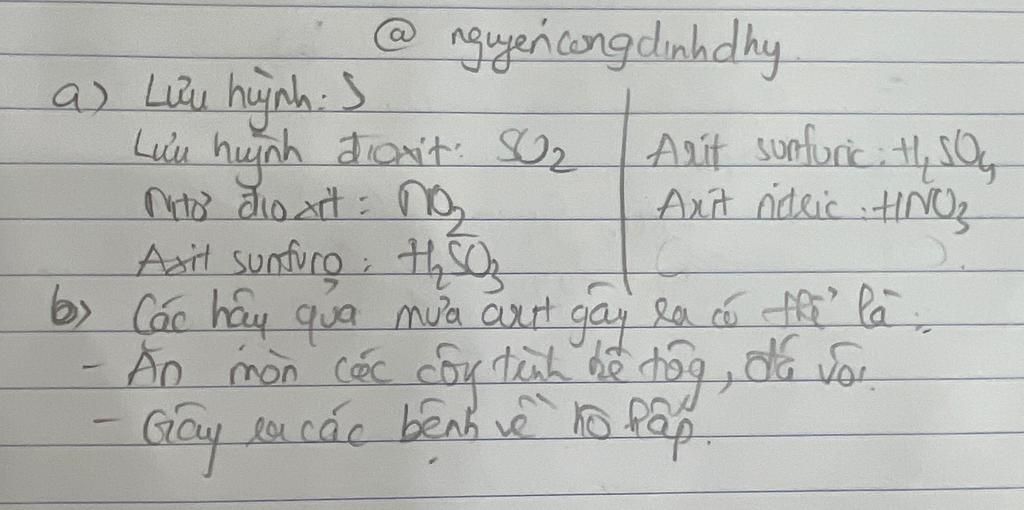 @ nguyencongdinhdhy
a) Lưu huỳnh: S
Lưu huỳnh đioxit: SO₂
Nitơ đioxit: NO₂
Axit sunfurơ: H₂SO₃
Axit sunfuric: H₂SO₄
Axit nitric: HNO₃
b) Các hậu quả mưa axit gây ra có thể là:
- Ăn mòn các công trình bê tông, đá vôi.
- Gây ra các bệnh về hô hấp.